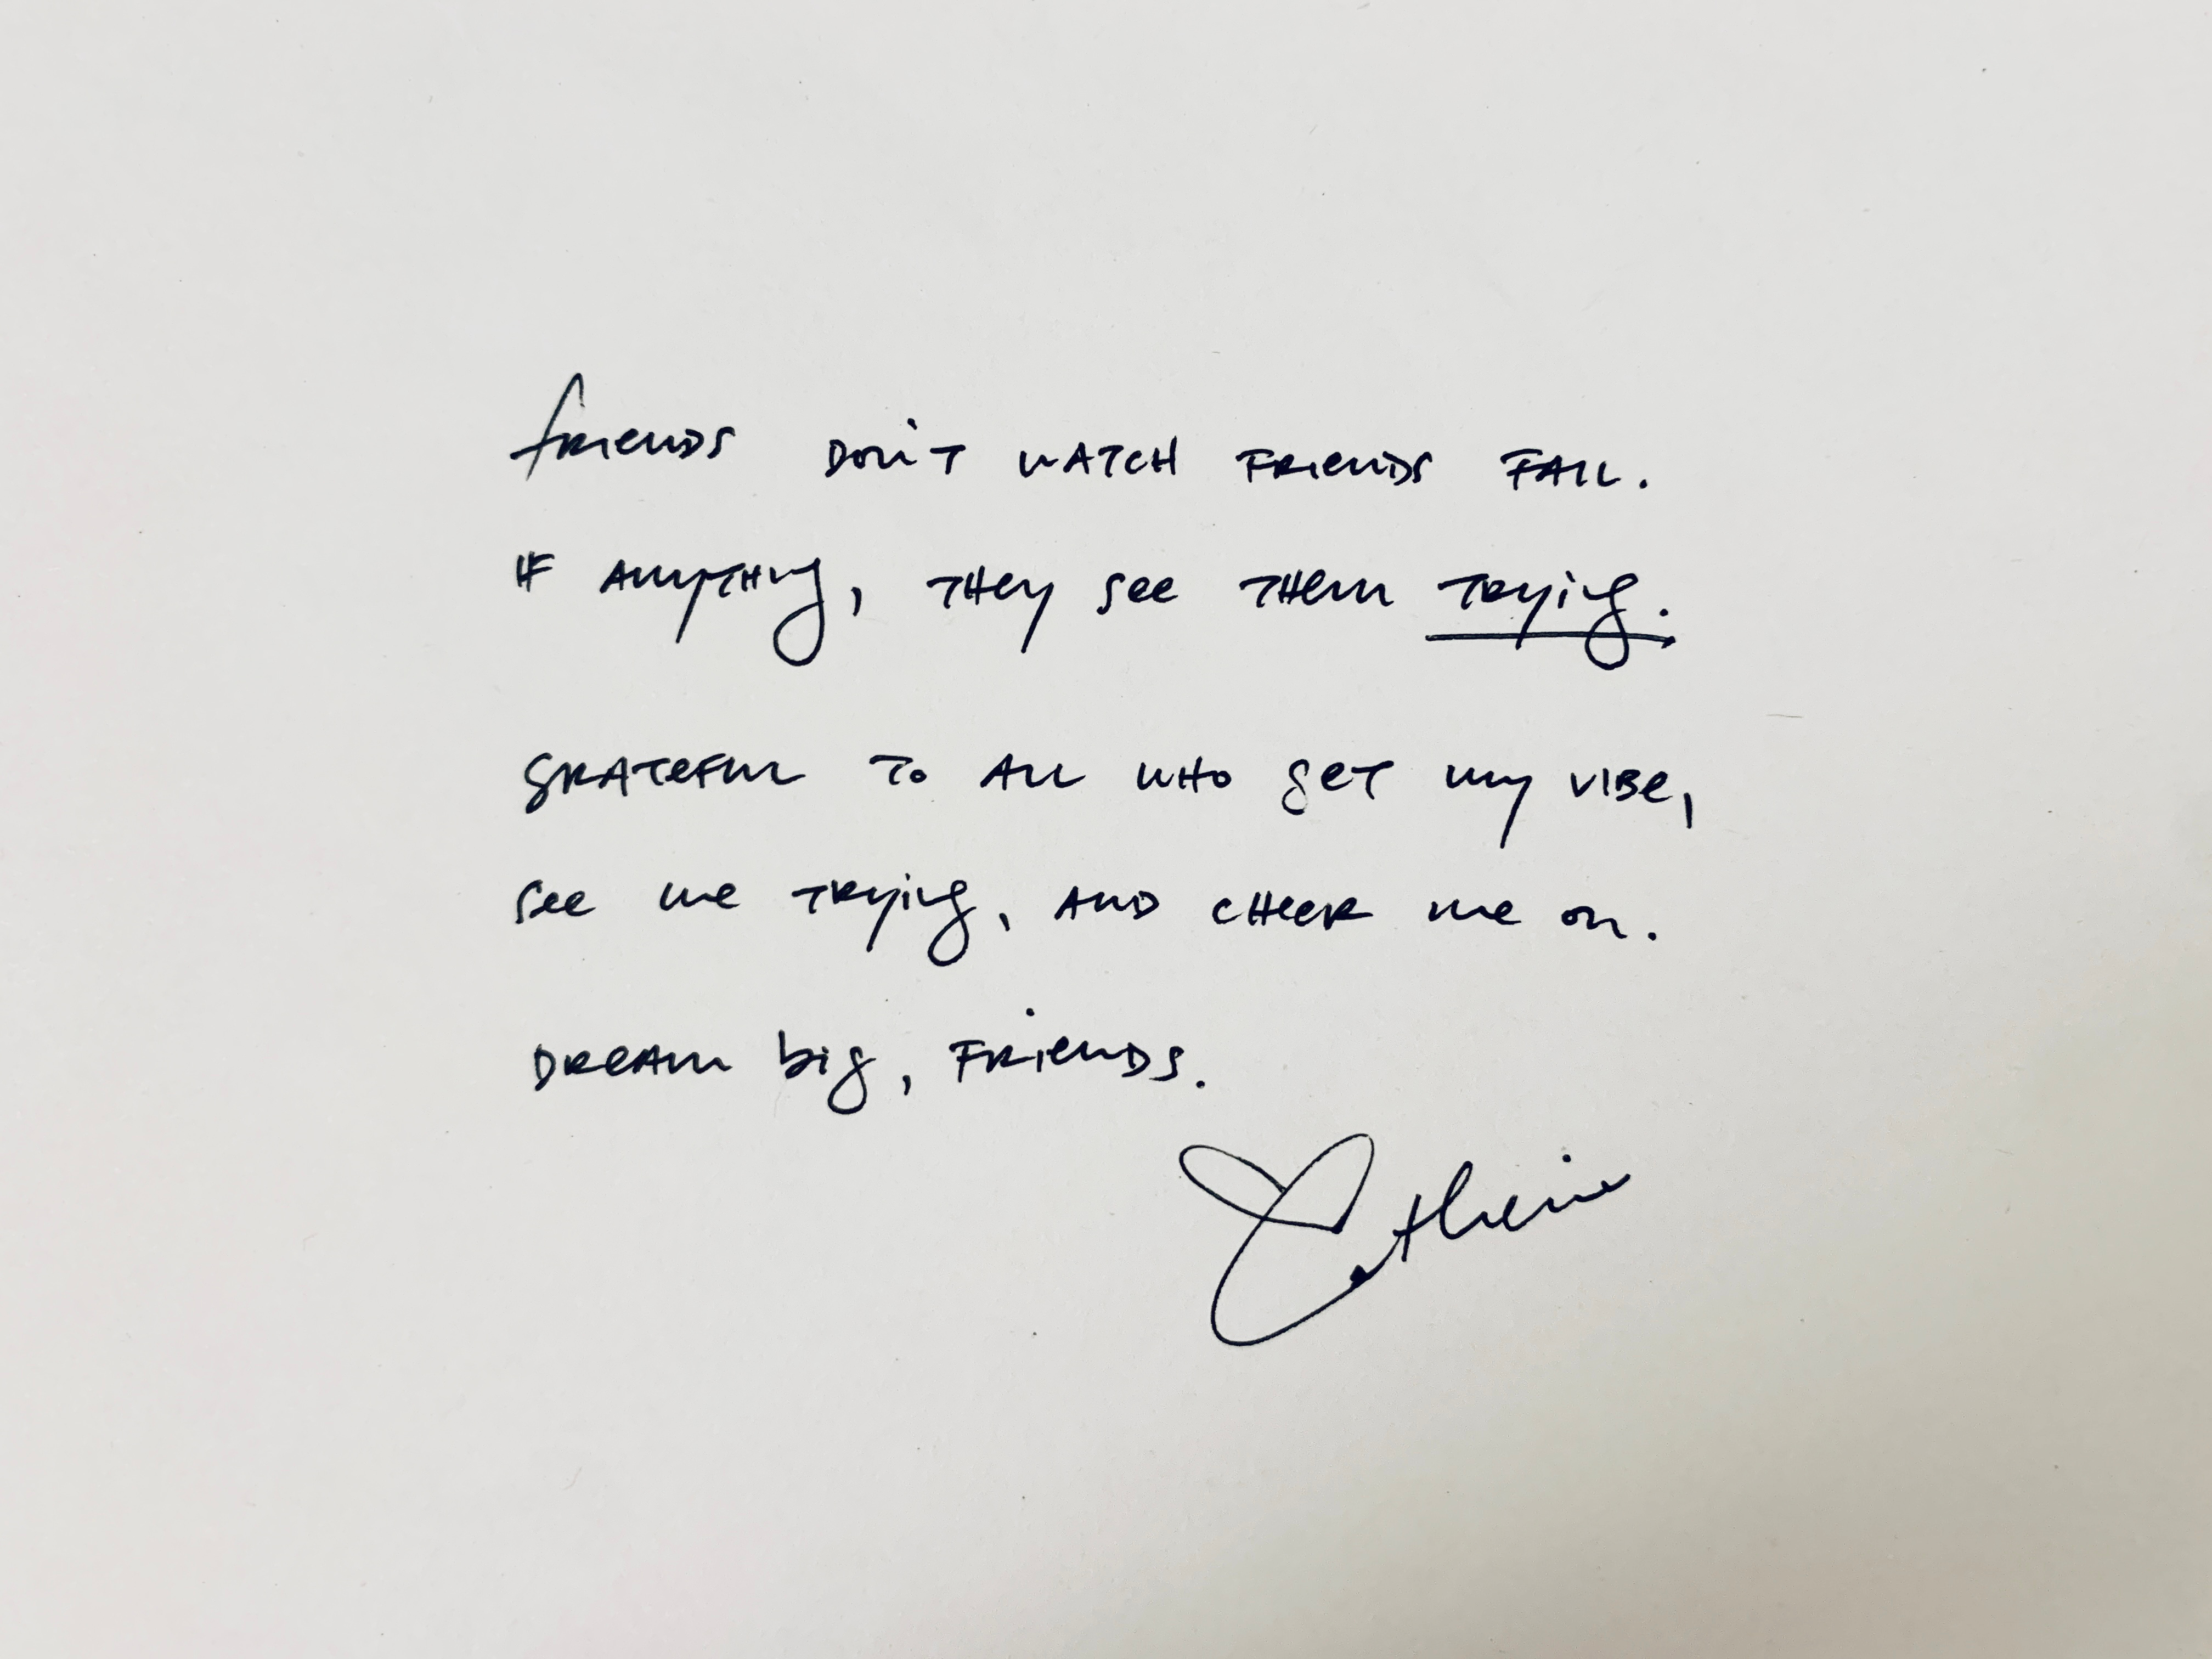 friends DON'T WATCH FRIENDS FAIL.
IF ANYTHING, THEY See THEM TRYing.
GRATEFUL TO ALL WHO GET MY VIBE,
See me TRYing, AND CHEER me on.
DREAM big, FRiENDS.